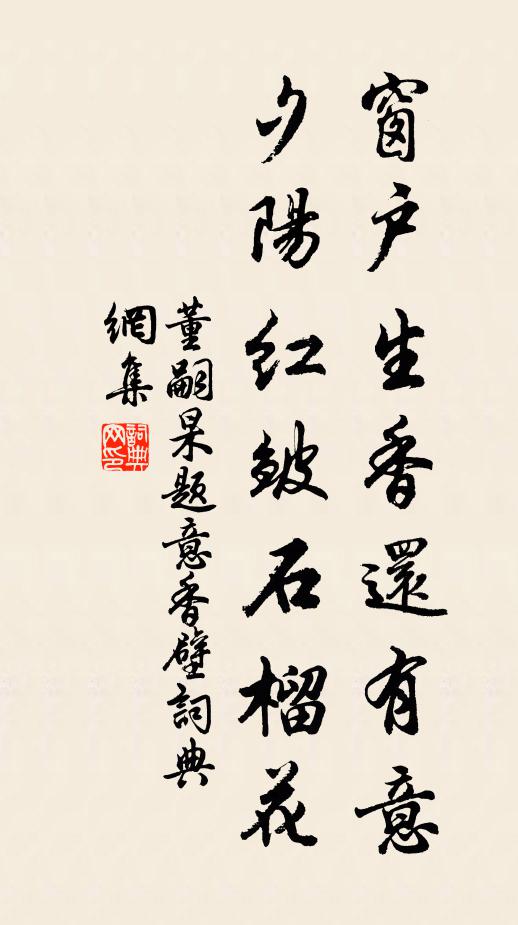 窗户生香還有意
夕陽紅皴石榴花
董嗣杲題意香壁詞典
網集
詞典
网印